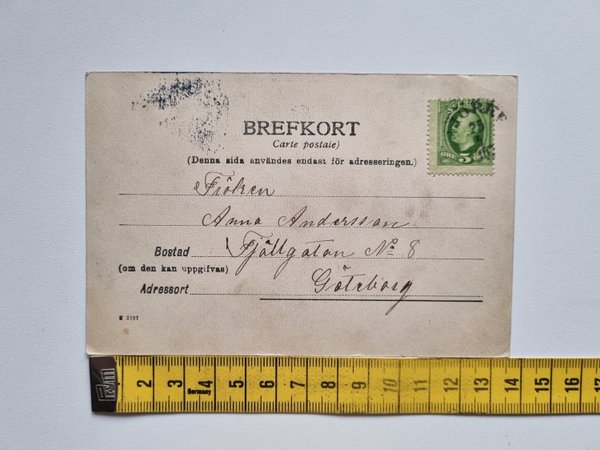 BREFKORT
Carte postale)
(Denna sida användes endast för adresseringen.)
Fröken
Anna Andersson
Bostad Fjällgatan No 8
(om den kan uppgifvas)
Göteborg
Adressort
ÖRE 5 ÖRE
2 3 4 5 6 7 8 9 10 11 12 13 14 15 16 17
Germany